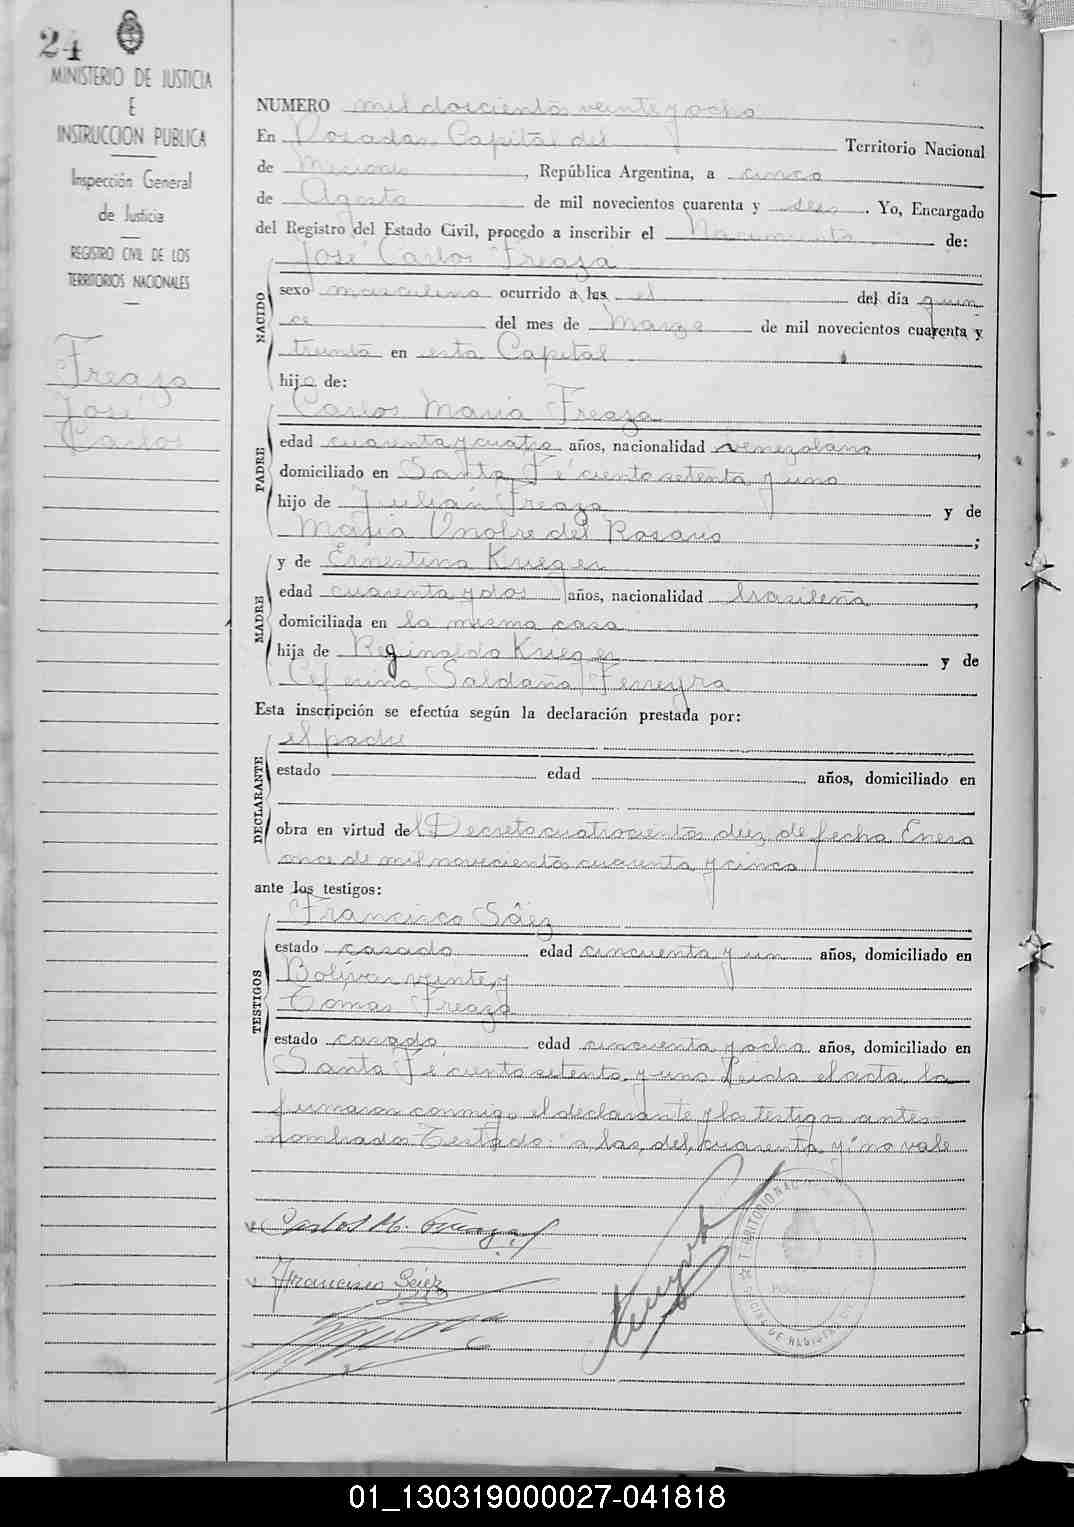 24
MINISTERIO DE JUSTICIA
E
INSTRUCCION PUBLICA
Inspección General
de Justicia
REGISTRO CIVIL DE LOS
TERRITORIOS NACIONALES
Freaza
José
Carlos
NUMERO mil doscientos veinte y ocho
En Posadas Capital del Territorio Nacional
de Misiones, República Argentina, a cinco
de Agosto de mil novecientos cuarenta y seis. Yo, Encargado
del Registro del Estado Civil, procedo a inscribir el Nacimiento de:
José Carlos Freaza
NACIDO
sexo masculino ocurrido a las el del día quin
ce del mes de Marzo de mil novecientos cuarenta y
treinta en esta Capital
hijo de:
Carlos Maria Freaza
PADRE
edad cuarenta y cuatro años, nacionalidad venezolano,
domiciliado en Santa Fé ciento setenta y uno
hijo de Julián Freaza y de
Maria Onofre del Rosario;
y de Ernestina Krieger
MADRE
edad cuarenta y dos años, nacionalidad brasileña,
domiciliada en la misma casa
hija de Reginaldo Krieger y de
Ceferina Saldaña Ferreyra
Esta inscripción se efectúa según la declaración prestada por:
el padre
DECLARANTE
estado edad años, domiciliado en
obra en virtud del Decreto cuatrocientos diez de fecha Enero
once de mil novecientos cuarenta y cinco
ante los testigos:
Francisco Sáez
TESTIGOS
estado casado edad cincuenta y un años, domiciliado en
Bolívar veinte y
Tomas Freaza
estado casado edad cincuenta y ocho años, domiciliado en
Santa Fé ciento setenta y uno Leida el acta la
firmaron conmigo el declarante y los testigos antes
nombrados Testado: a las, del, cuarenta y: no vale
Carlos M. Freaza
Francisco Sáez
TERRITORIO NACIONAL
OFICINA DE REGISTRO CIVIL
POSADAS
01_130319000027-041818